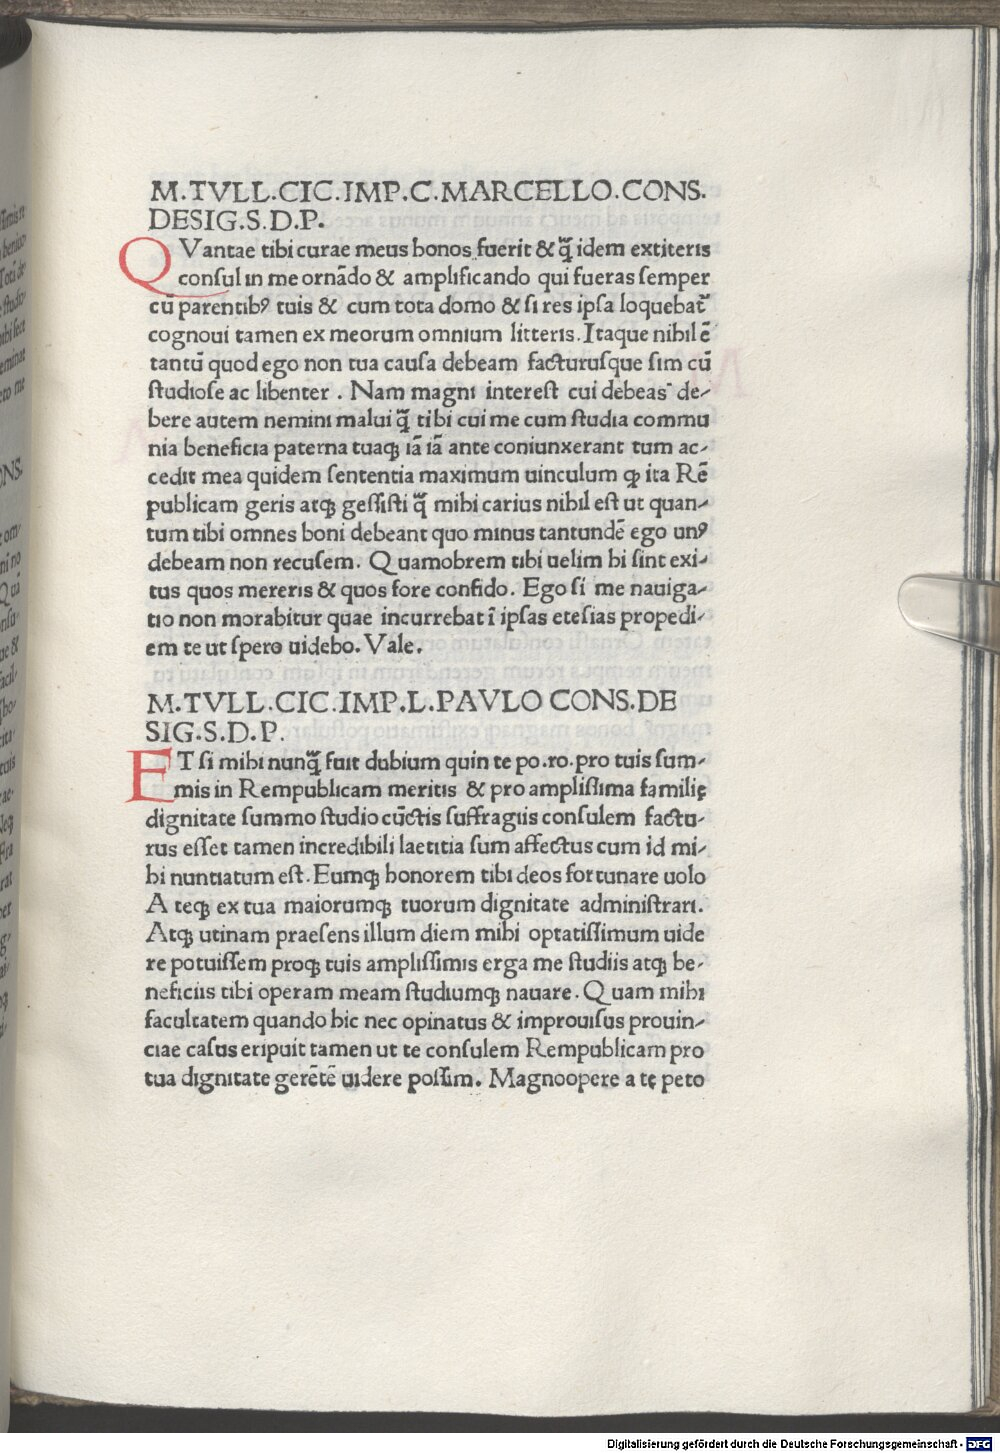 M.TVLL.CIC.IMP.C.MARCELLO.CONS.
DESIG.S.D.P.
QVantae tibi curae meus honos fuerit & q̃ idem extiteris
conſul in me ornãdo & amplificando qui fueras ſemper
cũ parentibꝰ tuis & cum tota domo & ſi res ipſa loquebat᷑
cognoui tamen ex meorum omnium litteris. Itaque nihil ẽ
tantũ quod ego non tua cauſa debeam facturuſque ſim cũ
ſtudioſe ac libenter . Nam magni intereſt cui debeas de-
bere autem nemini malui q̃ tibi cui me cum ſtudia commu
nia beneficia paterna tuaqꝫ iã iã ante coniunxerant tum ac-
cedit mea quidem ſententia maximum uinculum ꝙ ita Rẽ
publicam geris atqꝫ geſſiſti q̃ mihi carius nihil eſt ut quan-
tum tibi omnes boni debeant quo minus tantundẽ ego unꝰ
debeam non recuſem. Quamobrem tibi uelim hi ſint exi-
tus quos mereris & quos fore confido. Ego ſi me nauiga-
tio non morabitur quae incurrebat ĩ ipſas eteſias propedi-
em te ut ſpero uidebo. Vale.
M.TVLL.CIC.IMP.L.PAVLO CONS.DE
SIG.S.D.P.
ET ſi mihi nunq̃ fuit dubium quin te po.ro.pro tuis ſum-
mis in Rempublicam meritis & pro ampliſſima familię
dignitate ſummo ſtudio cũctis ſuffragiis conſulem factu-
rus eſſet tamen incredibili laetitia ſum affectus cum id mi-
hi nuntiatum eſt. Eumqꝫ honorem tibi deos fortunare uolo
A teqꝫ ex tua maiorumqꝫ tuorum dignitate adminiſtrari.
Atqꝫ utinam praeſens illum diem mihi optatiſſimum uide
re potuiſſem proqꝫ tuis ampliſſimis erga me ſtudiis atqꝫ be-
neficiis tibi operam meam ſtudiumqꝫ nauare. Quam mihi
facultatem quando hic nec opinatus & improuiſus prouin-
ciae caſus eripuit tamen ut te conſulem Rempublicam pro
tua dignitate gerẽtẽ uidere poſſim. Magnoopere a tę peto
Digitalisierung gefördert durch die Deutsche Forschungsgemeinschaft - DFG